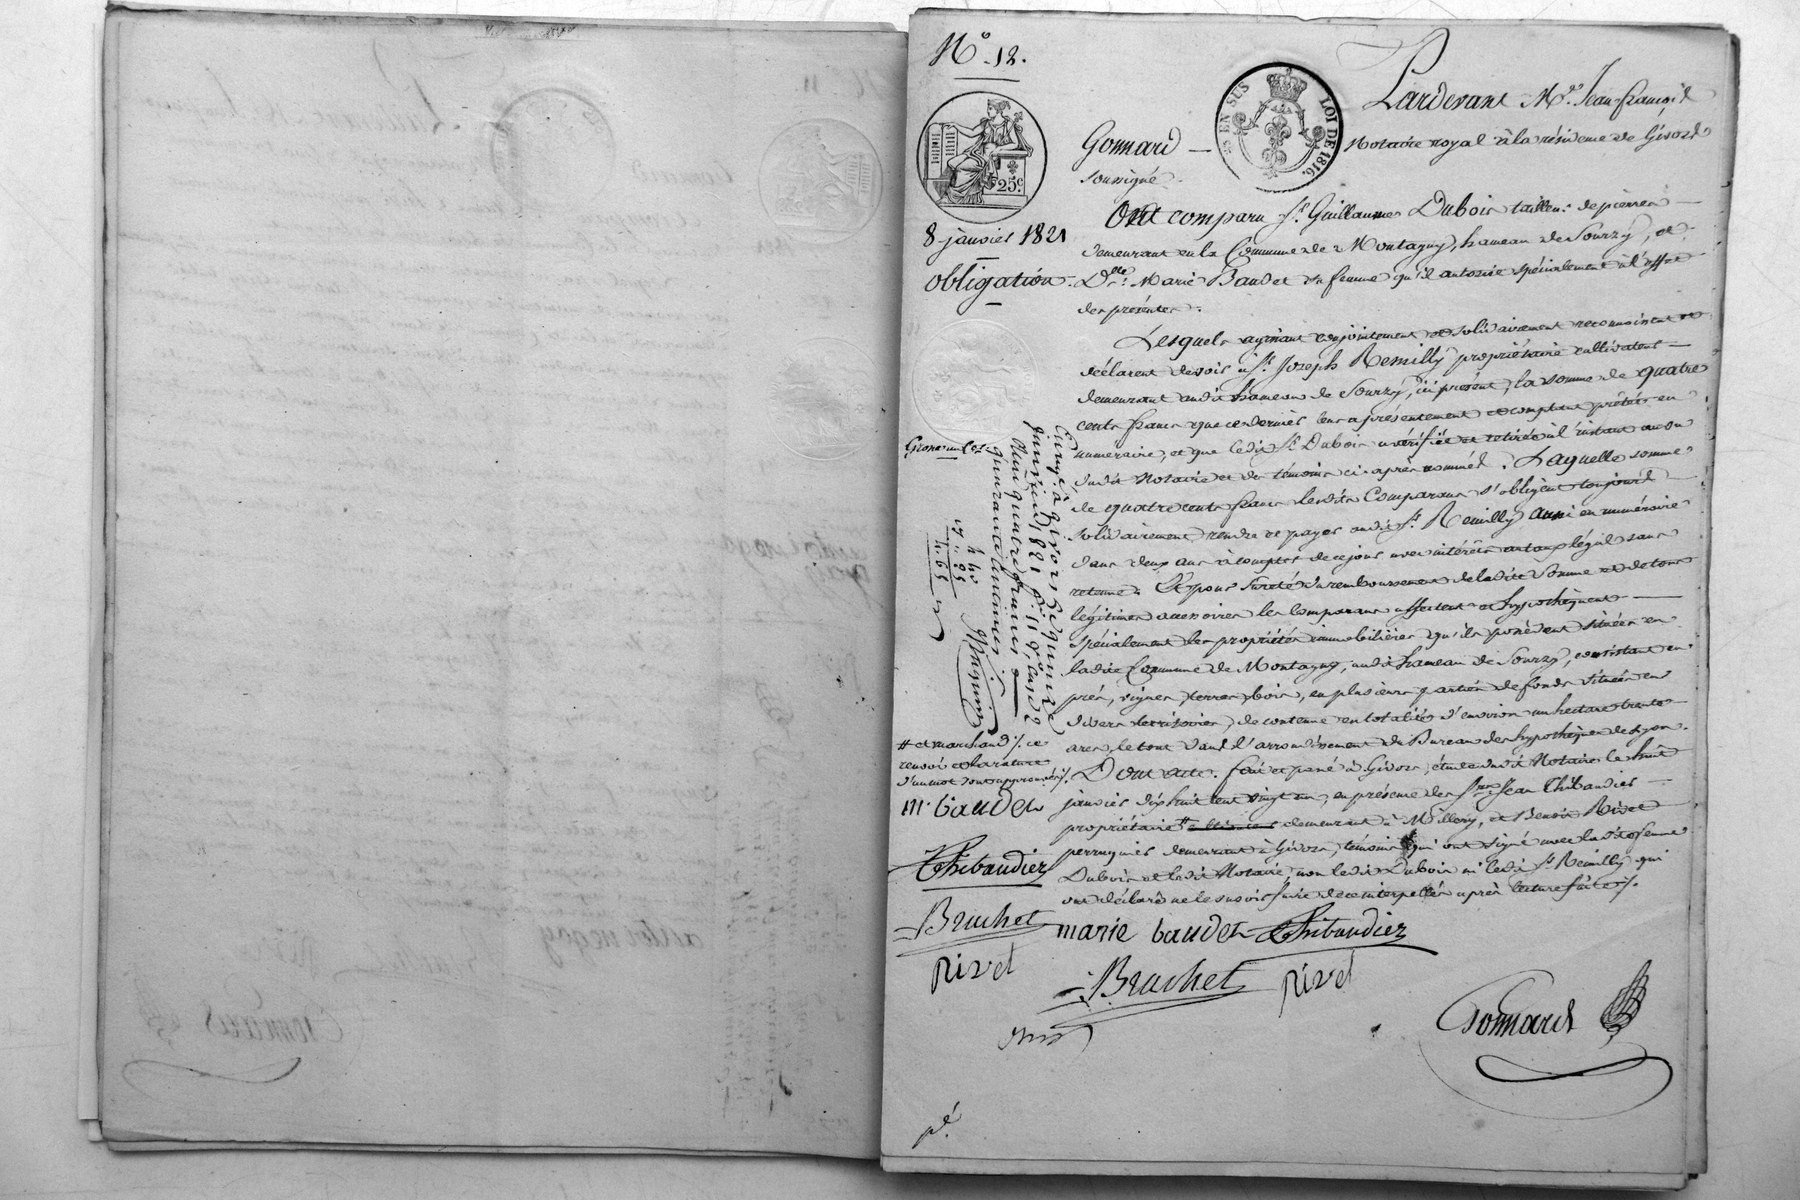 N.° 12.
25 EN SUS
LOI DE 1816.
25c.
8 janvier 1821
obligation.
Pardevant M.e Jean-françois
Gonnard — Notaire royal à la résidence de Givors
soussigné.
Ont comparu S.r Guillaume Dubois tailleur de pierres —
demeurant en la Commune de Montagny, hameau de Sourzy, et
D.lle Marie Baudet sa femme qu'il autorise spécialement à l'effet
des présentes.
Lesquels agissant conjointement et solidairement reconnoissent et
déclarent devoir à S.r Joseph Remilly propriétaire cultivateur —
demeurant audit hameau de Sourzy, ici présent, la somme de quatre
cents francs que ce dernier leur a présentement et comptant prêtés en
numéraire, et que ledit S.r Dubois a vérifiée et retirée à l'instant au vu
dudit Notaire et des témoins ci-après nommés. Laquelle somme
de quatre cents francs lesdits Comparans s'obligent toujours
solidairement, rendre et payer audit S.r Remilly aussi en numéraire
dans deux ans à compter de ce jour avec intérêts au taux légal sans
retenue. Et pour sureté du remboursement de ladite somme et de tous
légitimes accessoires les comparans affectent et hypothèquent —
spécialement les propriétés immobilières qu'ils possèdent situées en
ladite Commune de Montagny, audit hameau de Sourzy, consistant en
prés, vignes, terres, bois, en plusieurs parties de fonds situées en
divers territoires, de contenue en totalité d'environ un hectare trente
ares, le tout dans l'arrondissement du Bureau des hypothèques de Lyon.
Dont acte. fait et passé à Givors, étude dudit Notaire le huit
janvier dix huit cent vingt un, en présence des S.rs Jean Thibaudier —
propriétaire # demeurant à Millery, et Benoit Rivet
perruquier demeurant à Givors, témoins qui ont signé avec ladite femme
Dubois et ledit Notaire, non ledit Dubois ni ledit S.r Remilly qui
ont déclaré ne le savoir faire de ce interpellés après lecture faite ./.
Grosse
Enregé à givors le quinze
janvier 1821 f.o 11 R.o case 2
Reçu quatre francs
quarante centimes
4 40
# et marchand ./. ce
renvoi et la rature
d'un mot sont approuvés ./.
m. baudet
Thibaudier
Bruchet
Rivet
marie baudet Thibaudier
Bruchet Rivet
Gonnard